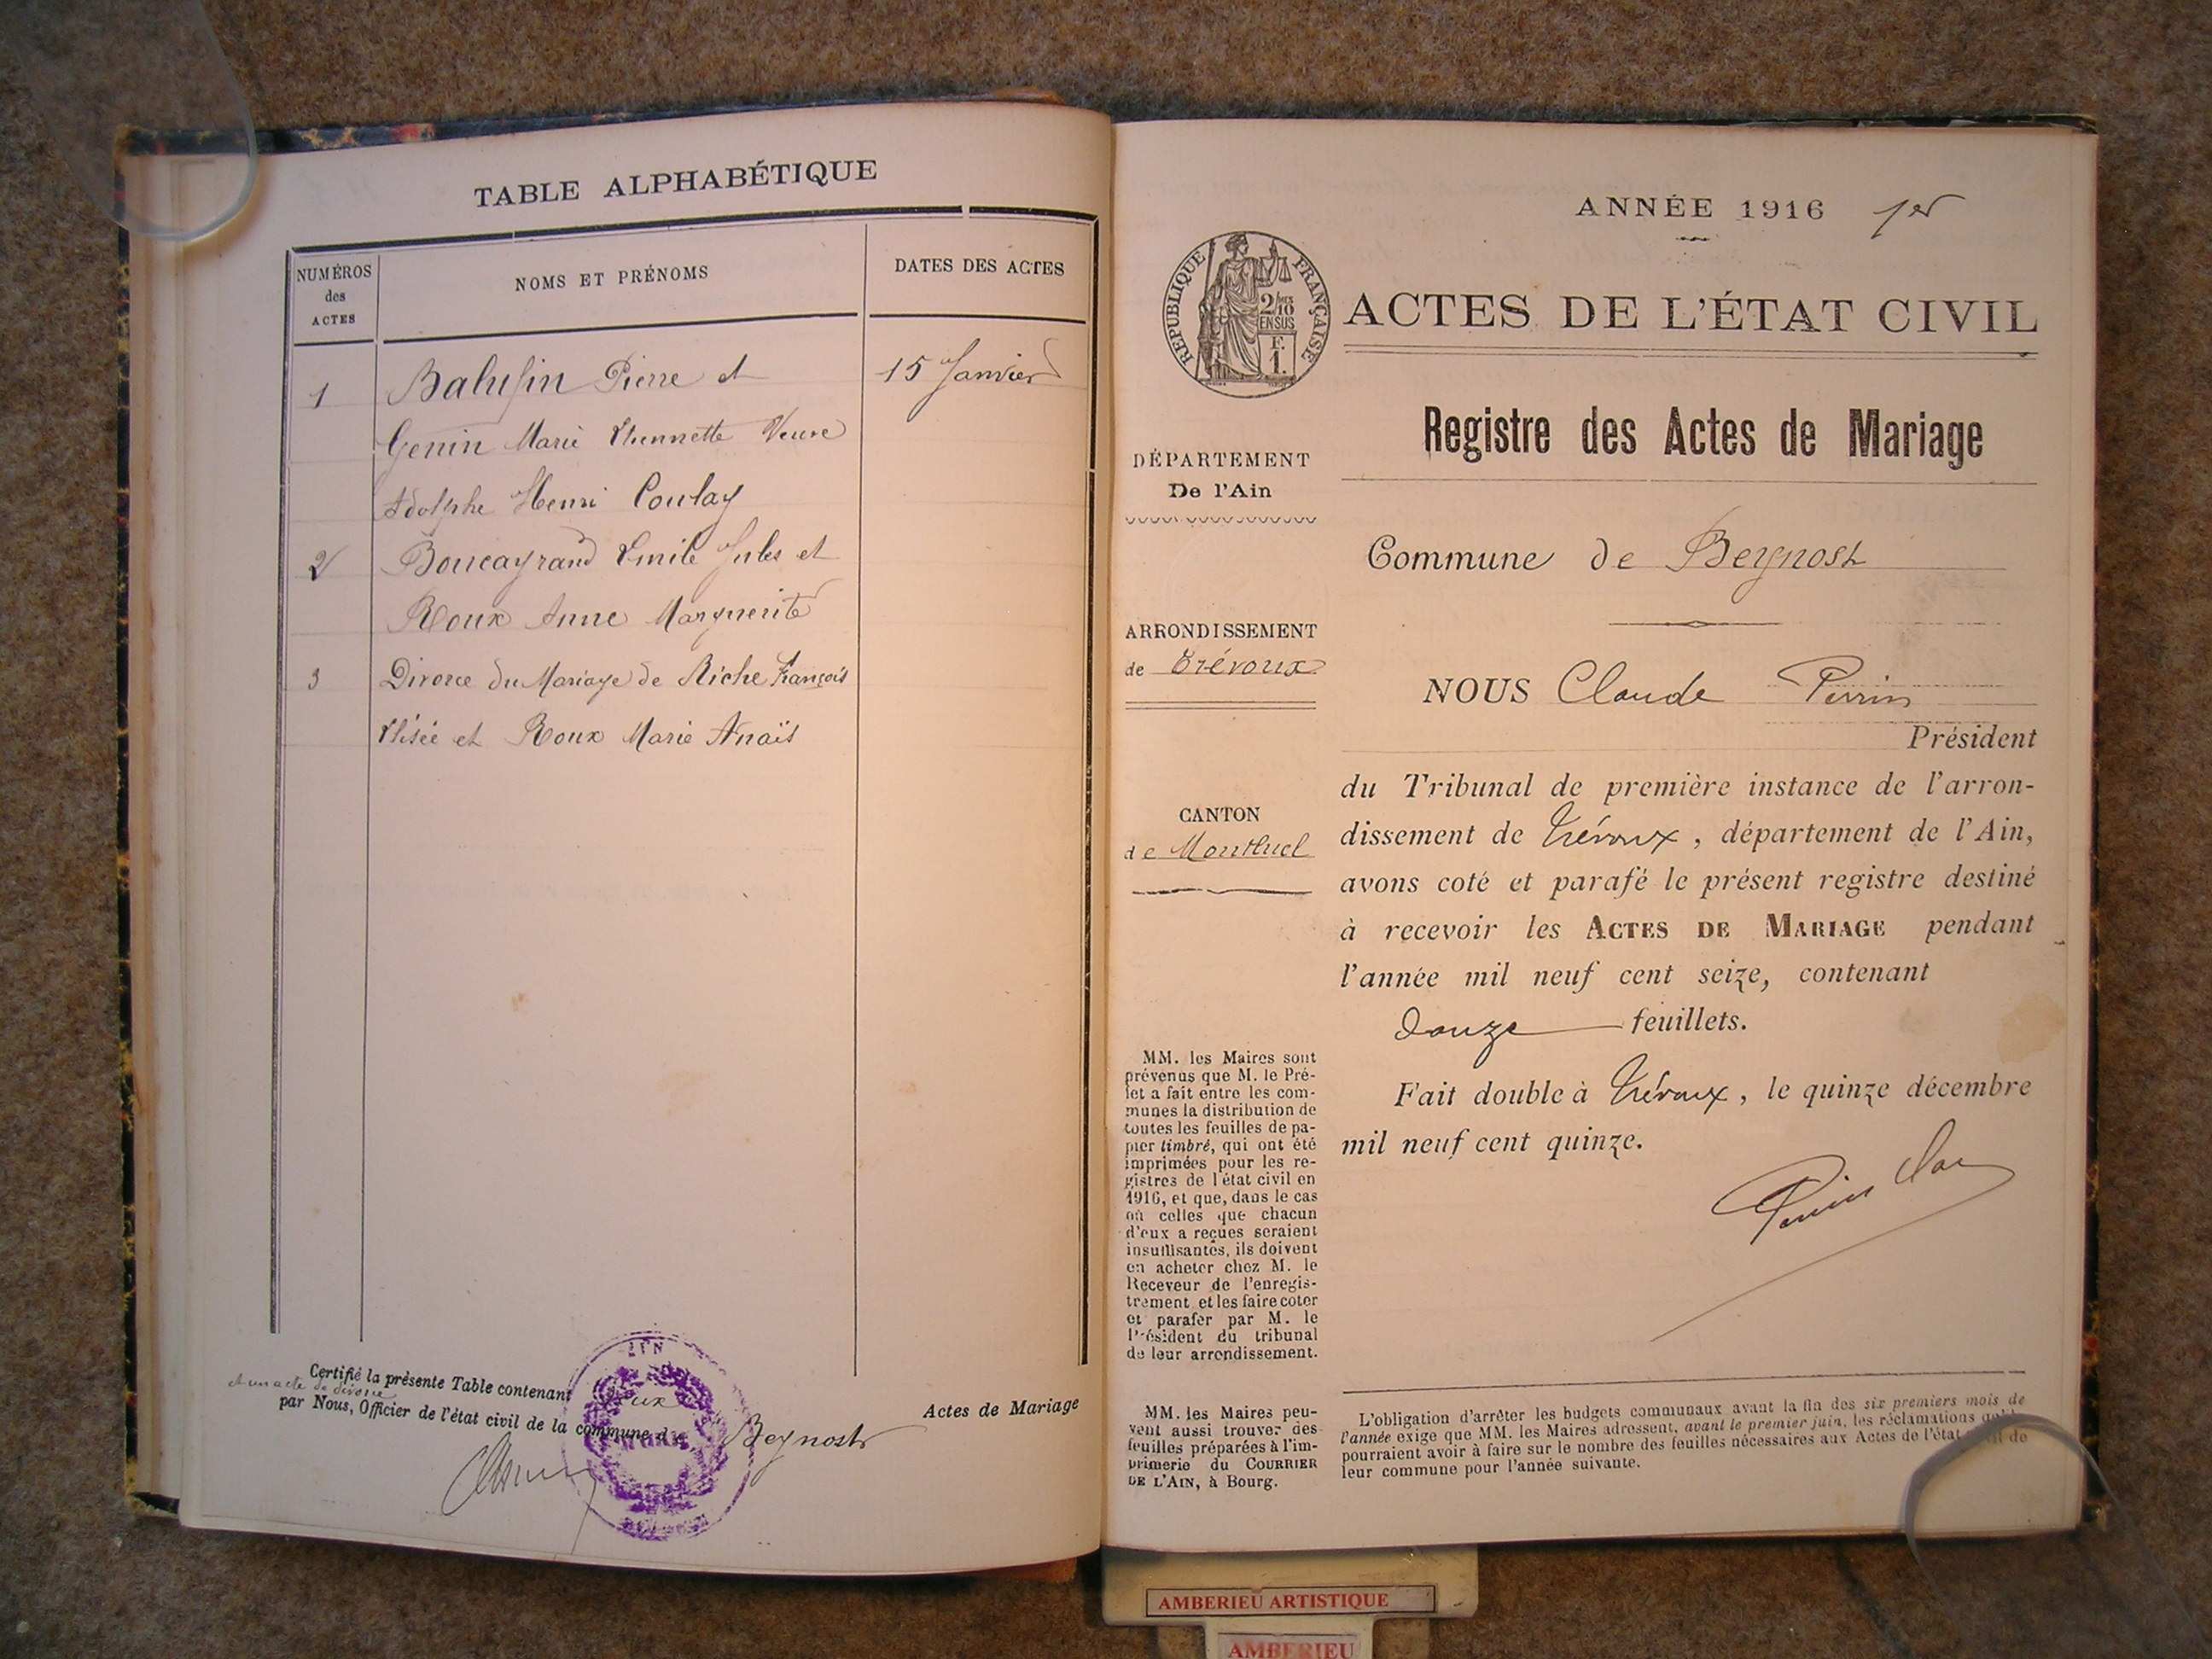 TABLE ALPHABÉTIQUE
NUMÉROS
des
ACTES
NOMS ET PRÉNOMS
DATES DES ACTES
1 Balufin Pierre et 15 Janvier
Genin Marie Etiennette Veuve
Adolphe Henri Coulay
2 Boucayrand Emile Jules et
Roux Anne Marguerite
3 Divorce du Mariage de Riche François
Elisée et Roux Marie Anaïs
Certifié la présente Table contenant deux Actes de Mariage
et un acte de divorce
par Nous, Officier de l'état civil de la commune d Beynost
AIN
ANNÉE 1916 1er
RÉPUBLIQUE FRANÇAISE
2/10
EN SUS
F.
1.
ACTES DE L'ÉTAT CIVIL
Registre des Actes de Mariage
DÉPARTEMENT
De l'Ain
Commune de Beynost
ARRONDISSEMENT
de Trévoux
NOUS Claude Perrin
Président
du Tribunal de première instance de l'arron-
dissement de Trévoux, département de l'Ain,
avons coté et parafé le présent registre destiné
à recevoir les ACTES DE MARIAGE pendant
l'année mil neuf cent seize, contenant
douze feuillets.
Fait double à Trévoux, le quinze décembre
mil neuf cent quinze.
CANTON
de Montluel
MM. les Maires sont
prévenus que M. le Pré-
fet a fait entre les com-
munes la distribution de
toutes les feuilles de pa-
pier timbré, qui ont été
imprimées pour les re-
gistres de l'état civil en
1916, et que, dans le cas
où celles que chacun
d'eux a reçues seraient
insuffisantes, ils doivent
en acheter chez M. le
Receveur de l'enregis-
trement et les faire coter
et parafer par M. le
Président du tribunal
de leur arrondissement.
MM. les Maires peu-
vent aussi trouver des
feuilles préparées à l'im-
primerie du COURRIER
DE L'AIN, à Bourg.
L'obligation d'arrêter les budgets communaux avant la fin des six premiers mois de
l'année exige que MM. les Maires adressent, avant le premier juin, les réclamations qu'ils
pourraient avoir à faire sur le nombre des feuilles nécessaires aux Actes de l'état civil de
leur commune pour l'année suivante.
AMBERIEU ARTISTIQUE
AMBERIEU